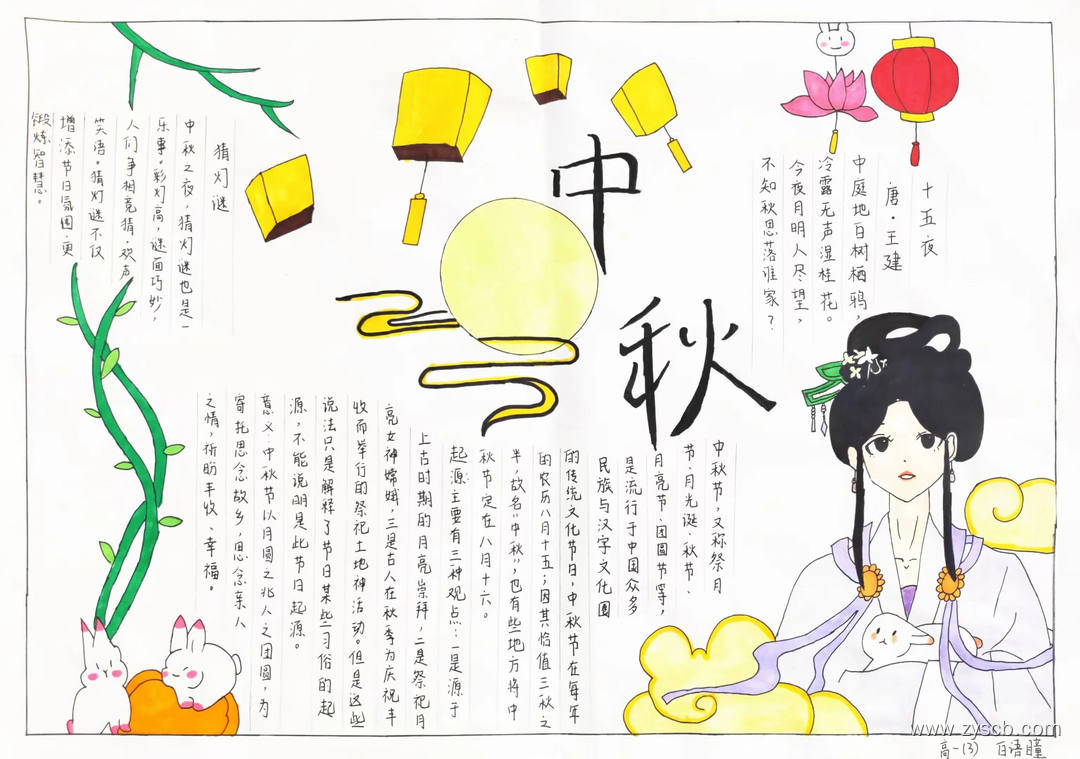 中
秋
十五夜
唐·王建
中庭地白树栖鸦，
冷露无声湿桂花。
今夜月明人尽望，
不知秋思落谁家？
中秋节，又称祭月
节、月光诞、秋节、
月亮节、团圆节等，
是流行于中国众多
民族与汉字文化圈
的传统文化节日，中秋节在每年
的农历八月十五；因其恰值三秋之
半，故名“中秋”，也有些地方将中
秋节定在八月十六。
起源主要有三种观点：一是源于
上古时期的月亮崇拜，二是祭祀月
亮女神嫦娥，三是古人在秋季为庆祝丰
收而举行的祭祀土地神活动。但是这些
说法只是解释了节日某些习俗的起
源，不能说明是此节日起源。
意义：中秋节以月圆之兆人之团圆，为
寄托思念故乡，思念亲人
之情，祈盼丰收、幸福。
猜灯谜
中秋之夜，猜灯谜也是一
乐事。彩灯高，谜面巧妙，
人们争相竞猜，欢声
笑语。猜灯谜不仅
增添节日氛围，更
锻炼智慧。
www.zyscb.com
高一(3) 百语瞳